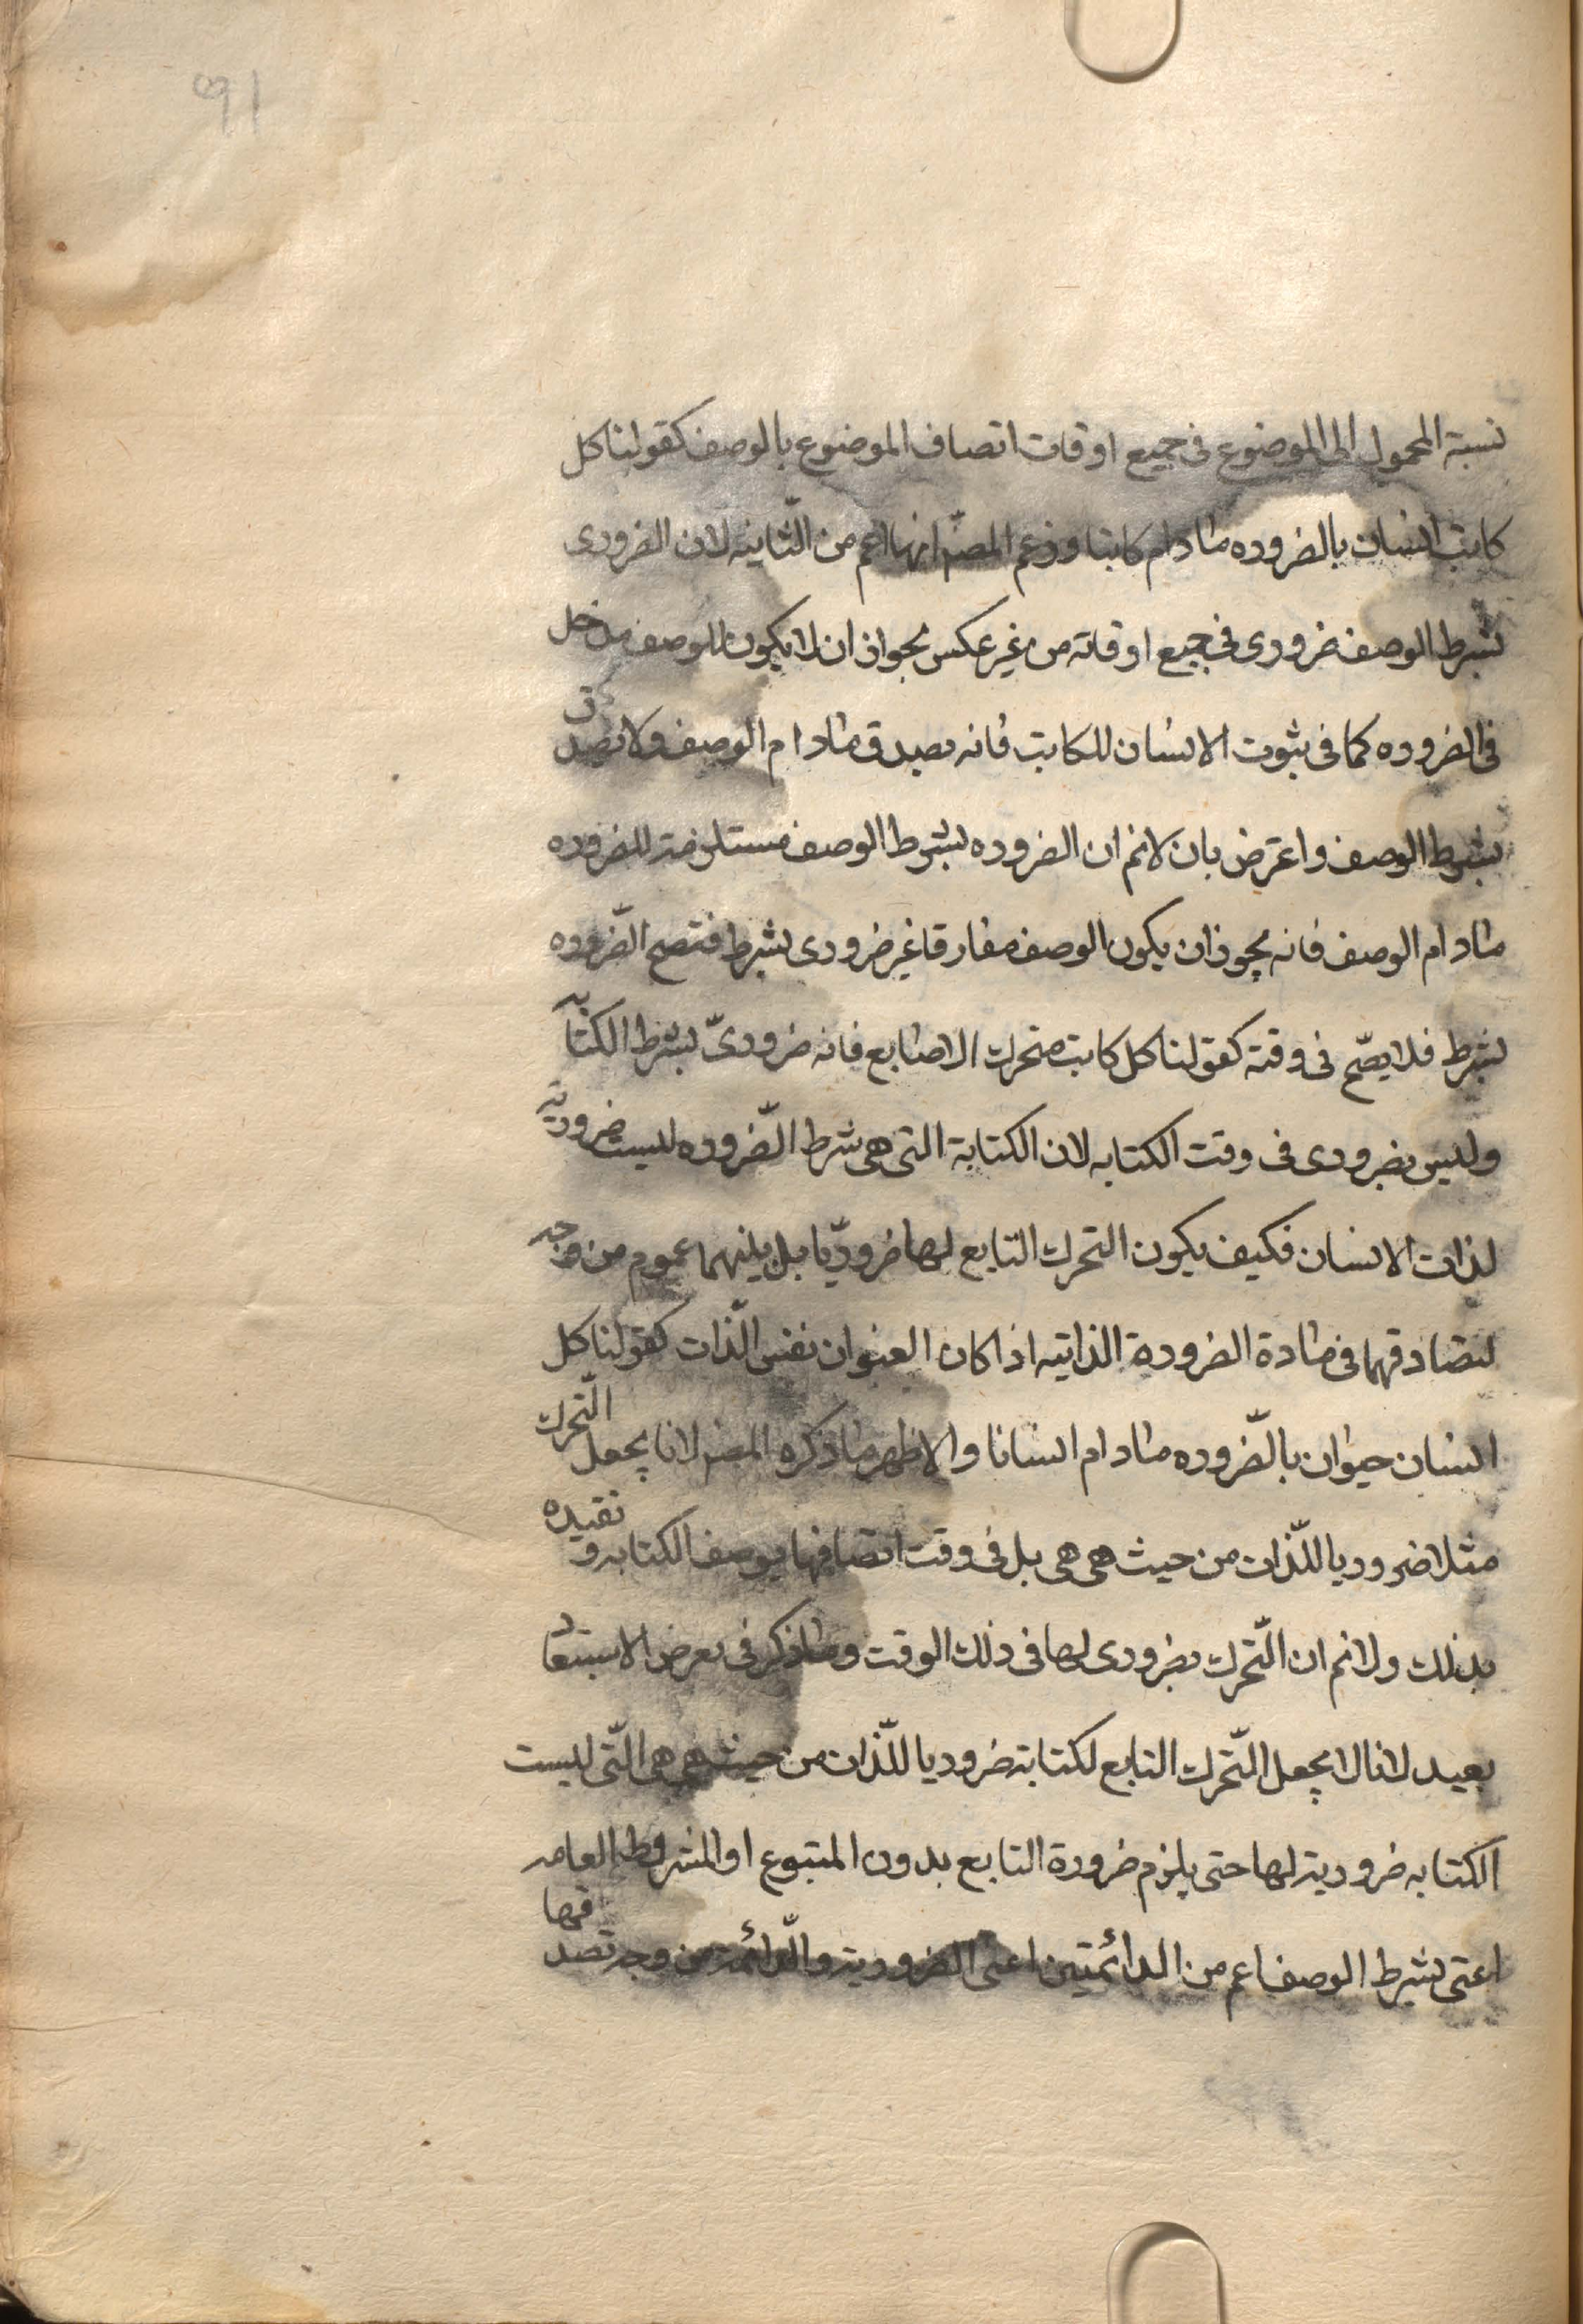 ٩١
نسبة المحمول الى الموضوع فى جميع اوقات اتصاف الموضوع بالوصف كقولنا كل
كاتب انسان بالضروره مادام كاتبا وزعم المصّ انها اعم من الثّانيه لان الضرورى
بشرط الوصف ضرورى فى جميع اوقاته من غير عكس لجواز ان لا يكون للوصف مدخل
فى الضروره كما فى ثبوت الانسان للكاتب فانه يصدق مادام الوصف ولا تصدق
بشرط الوصف واعترض بان لانم ان الضروره بشرط الوصف مستلزمة للضروره
مادام الوصف فانه يجوز ان يكون الوصف مفارقا غير ضرورى بشرط فتصح الضّروره
بشرط فلا يصّح فى وقته كقولنا كل كاتب متحرك الاصابع فانه ضرورىّ بشرط الكتابه
وليس بضرورى فى وقت الكتابه لان الكتابة التى هى شرط الضّروره ليست ضرورية
لذات الانسان فكيف يكون التحرك التابع لها ضروريّا بل بينهما عموم من وجه
لتصادقهما فى مادة الضرورة الذاتيه اذا كان العنوان نفس الذّات كقولنا كل
انسان حيوان بالضّروره مادام انسانا والاظهر ما ذكره المص لانا نجعل التّحرك
مثلا ضروريا للذّات من حيث هى هى بل فى وقت اتصافها بوصف الكتابه و نقيده
بذلك ولانم ان التّحرك بضرورى لها فى ذلك الوقت وما ذكر فى معرض الاستبعاد
بعيد لانا لا نجعل التّحرك التابع لكتابة ضروريا للذّات من حيث هى هى الّتى ليست
الكتابه ضرورية لها حتى يلزم ضرورة التابع بدون المتبوع او المشروطه العامه
اعنى بشرط الوصف اعم من الدائمتين اعنى الضرورية والدّائمة من وجه تصدقها